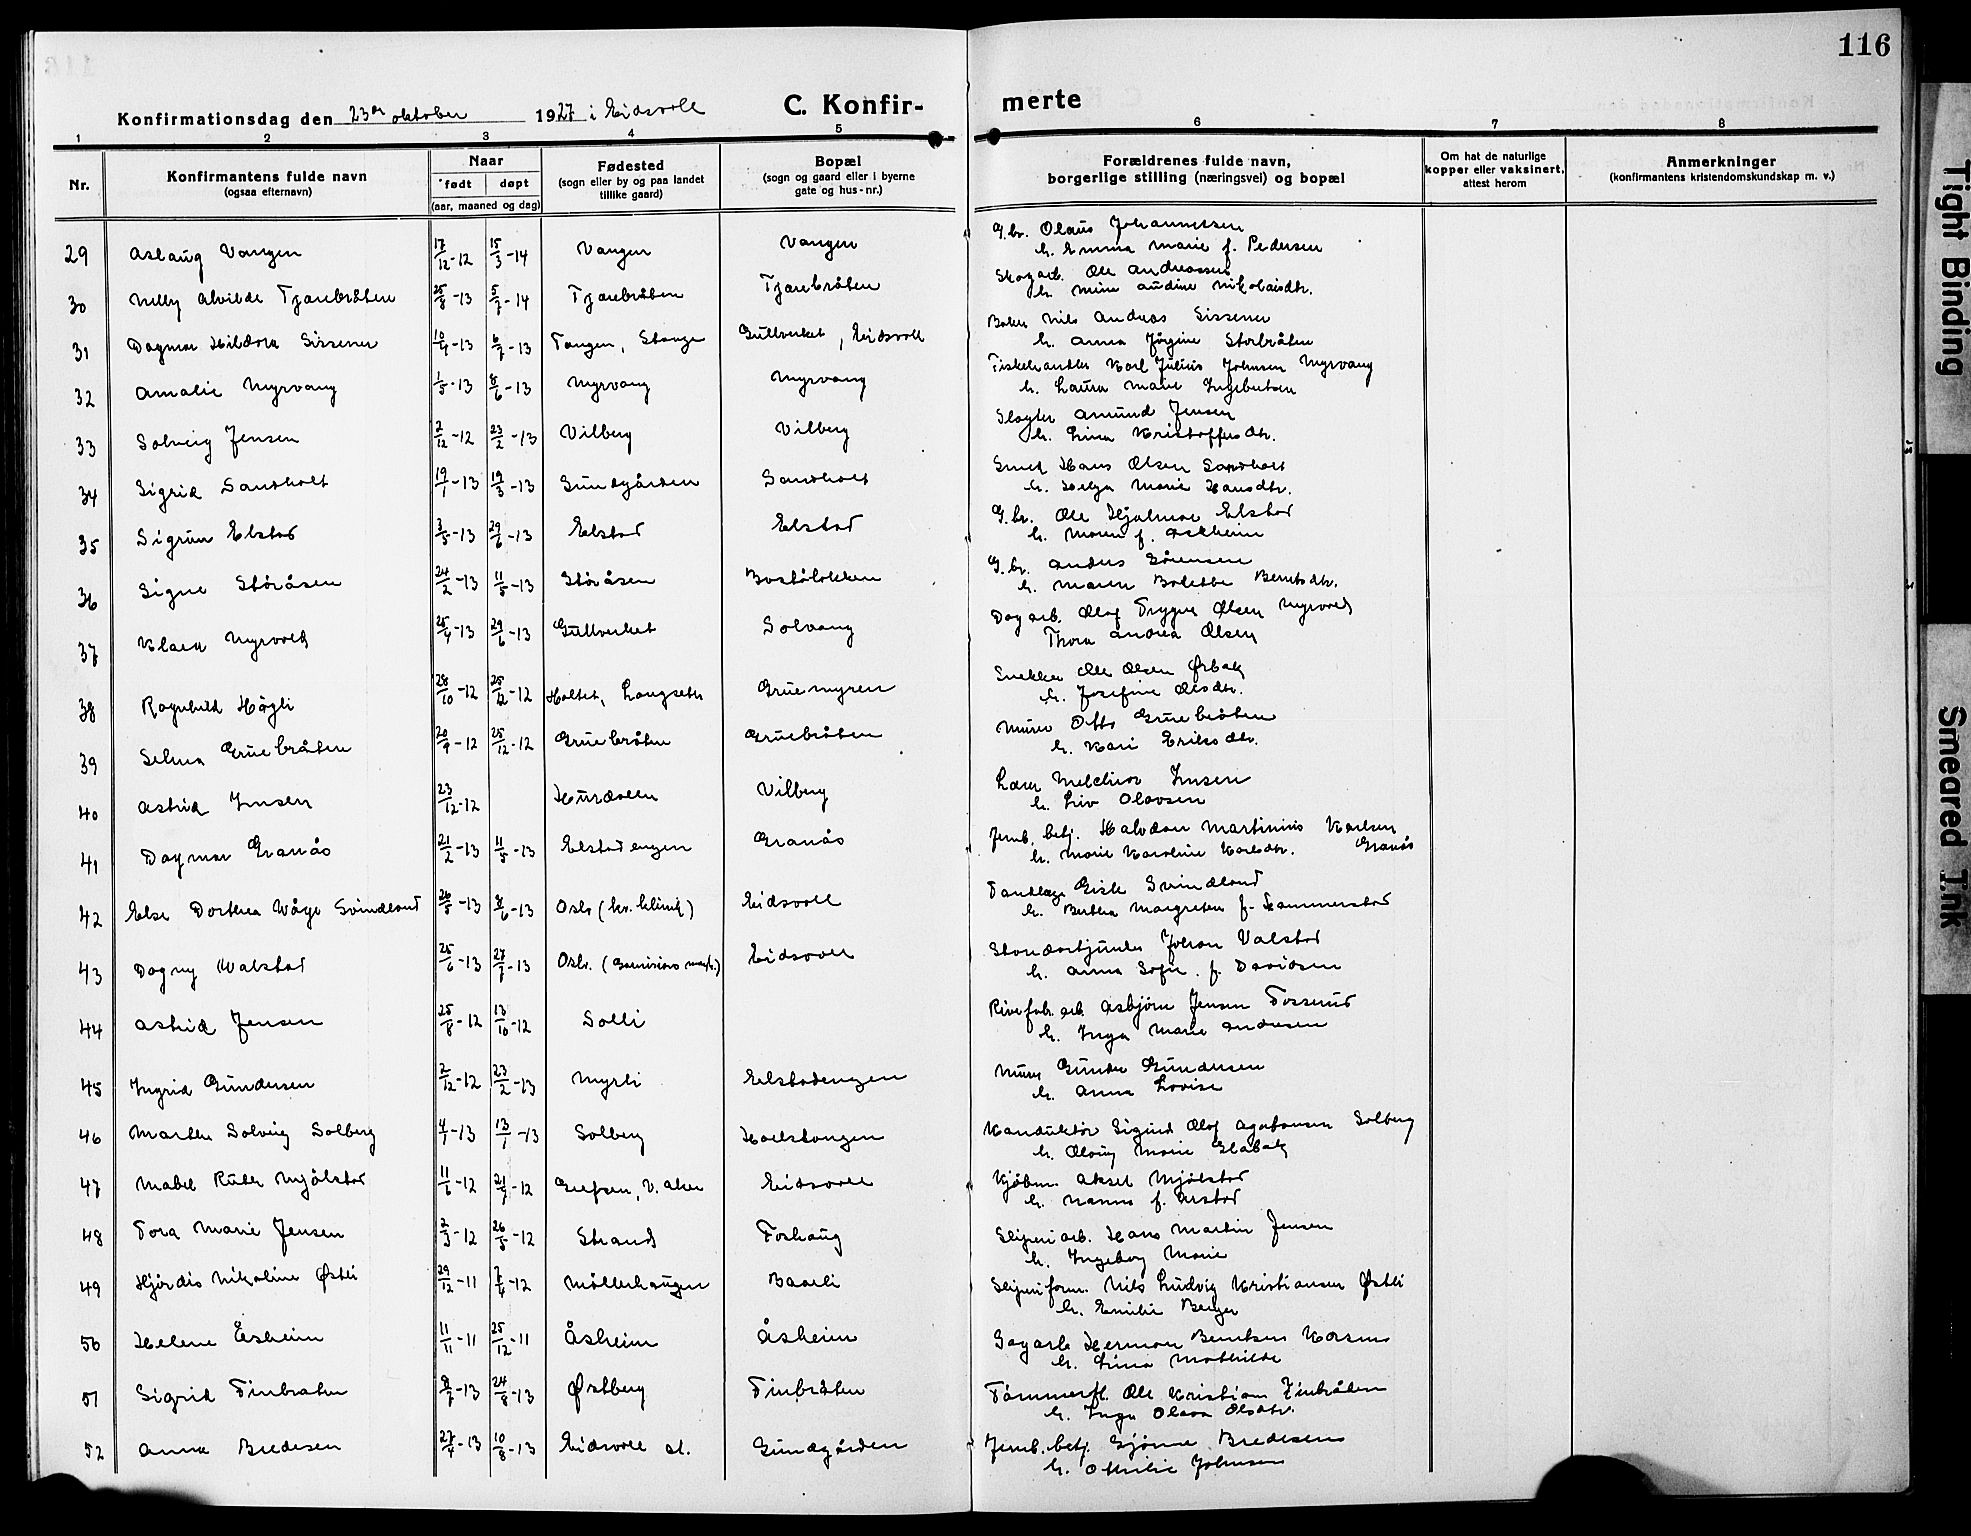 116
Konfirmationsdag den 23de oktober 1927 i Eidsvoll
C. Konfir-
merte
1 2 3 4 5 6 7 8
Nr.
Konfirmantens fulde navn
(ogsaa efternavn)
Naar
født døpt
(aar, maaned og dag)
Fødested
(sogn eller by og paa landet
tillike gaard)
Bopæl
(sogn og gaard eller i byerne
gate og hus-nr.)
Forældrenes fulde navn,
borgerlige stilling (næringsvei) og bopæl
Om hat de naturlige
kopper eller vaksinert,
attest herom
Anmerkninger
(konfirmantens kristendomskundskap m. v.)
29 Aslaug Vangen 17/12-12 15/3-14 Vangen Vangen G.br. Olaus Johannessen
h. Emma Marie f. Pedersen
30 Nelly Alvilde Tjærebråten 25/8-13 5/7-14 Tjærebråten Tjærebråten Skogarb. Ole Andreassen
h. Mina Audine Nikolaisdtr.
31 Dagmar Hildora Sissener 10/4-13 6/7-13 Tangen, Stange Gullverket, Eidsvoll Baker Nils Andreas Sissener
h. Anna Jørgine Storbråten
32 Amalie Myrvang 1/5-13 8/6-13 Myrvang Myrvang Fiskehandler Karl Julius Johnsen Myrvang
h. Laura Marie Ingebretsen
33 Solveig Jensen 2/12-12 23/2-13 Vilberg Vilberg Slagter Amund Jensen
h. Lina Kristoffersdtr.
34 Sigrid Sandholt 19/1-13 19/3-13 Sundgården Sandholt Smed Hans Olsen Sandholt
h. Helga Marie Hansdtr.
35 Sigrun Elstad 3/5-13 29/6-13 Elstad Elstad G.br. Ole Hjalmar Elstad
h. Maren f. Askheim
36 Signe Støråsen 24/2-13 11/5-13 Støråsen G.br. Anders Sørensen
h. Maren Bolette Berntsdtr.
37 Klara Myrvold 25/4-13 29/6-13 Gullverket Solvang Dagarb. Olaf Trygve Olsen Myrvold
Thora Andrea Olsen
38 Ragnhild Høgli 28/10-12 25/12-12 Holtet, Langseter Gruemyren Snekker Ole Olsen Ørbak
h. Josefine Olsdtr.
39 Selma Gruebråten 20/9-12 25/12-12 Gruebråten Gruebråten Murer Otto Gruebråten
h. Kari Eriksdtr.
40 Astrid Imsen 23/12-12 Hurdalen Vilberg Lærer Melchior Imsen
h. Liv Olavsen
41 Dagmar Granås 21/2-13 11/5-13 Elstadengen Granås Jernb. betj. Halvdan Martinius Karlsen
h. Marie Karoline Karlsdtr. Granås
42 Else Dorthea Wåge Svindland 26/5-13 8/6-13 Oslo (kv. klinik) Eidsvoll Tandlæge Svindland
h. Bertha Margrethe f. Hammerstad
43 Dagny Walstad 25/6-13 27/7-13 Oslo. Eidsvoll Johan Valstad
h. Anna Sofie. f. Davidsen
44 Astrid Jensen 25/8-12 13/10-12 Solli Rivefabr. arb. Asbjørn Jensen Fossrud
h. Inga Marie Andresen
45 Ingrid Gundersen 2/12-12 23/2-13 Myrli Elstadengen Murer Gunder Gundersen
h. Anna Lovise
46 Marthe Solveig Solberg 4/1-13 13/1-13 Solberg Hoelstangen Konduktør Sigurd Olaf Agathonsen Solberg
h. Olaug Marie Glabak
47 Mabel Ruth Mjølstad 11/6-12 21/7-12 Grefsen, V. Aker Eidsvoll Kjøbm. Aksel Mjølstad
h. Nanna f. Arstad
48 Tora Marie Jensen 2/3-12 26/5-12 Strand Foshaug Sliperiarb. Hans Martin Jensen
h. Ingeborg Marie
49 Hjørdis Nikoline Østli 29/12-11 7/4-12 Møllerhaugen Baarli Sliperiform. Nils Ludvig Kristiansen Østli
h. Emilie Berger
50 Helene Åsheim 11/11-11 25/12-11 Åsheim Åsheim Sagarb. Herman Berntsen Korsmo
h. Lina Mathilde
51 Sigrid Finbråten 8/7-13 24/8-13 Østberg Finbråten Tømmerfl. Ole Kristian Finbråten
h. Inga Olava Olsdtr.
52 Anna Bredesen 27/4-13 10/8-13 Eidsvoll st. Sundgården Jernb. betj. Bredesen
h. Othilie Johnsen
Tight Binding
Smeared Ink